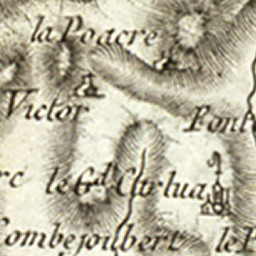 la Poacre
Victor
Pont
rc le Gd. Carlua
Combejoubert le P